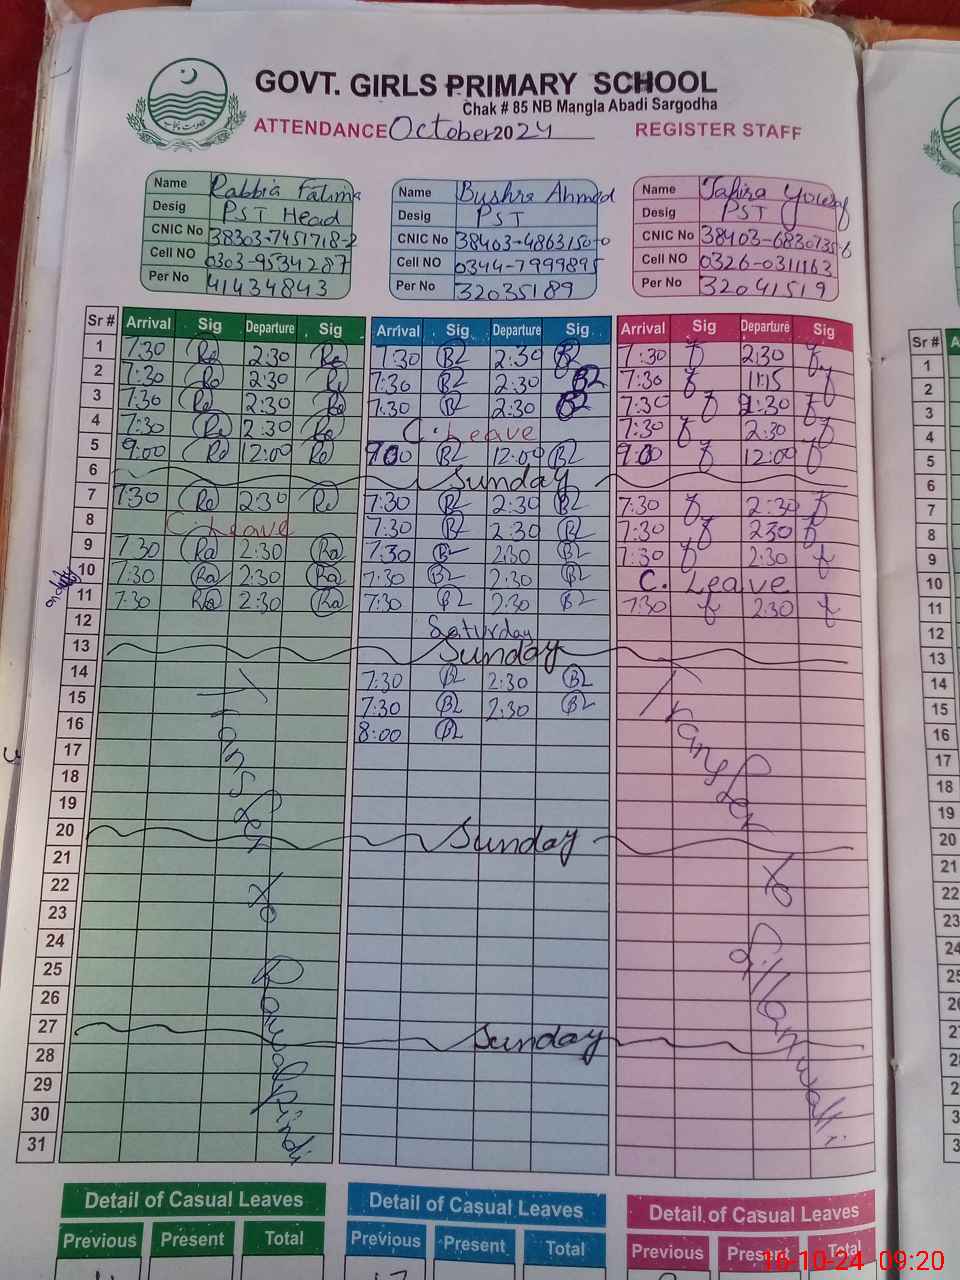 GOVT. GIRLS PRIMARY SCHOOL
Chak # 85 NB Mangla Abadi Sargodha
ATTENDANCE October 2024 REGISTER STAFF
Name Rabbia Fatima Name Bushra Ahmed Name Tahira Yousaf
Desig PST Head Desig PST Desig PST
CNIC No 38303-7451718-2 CNIC No 38403-4863150-0 CNIC No 38403-6830735-6
Cell NO 0303-9534287 Cell NO 0344-7999895 Cell NO 0326-0311163
Per No 41434843 Per No 32035189 Per No 32041519
Sr # Arrival Sig Departure Sig Arrival Sig Departure Sig Arrival Sig Departure Sig Sr #
1 7:30 2:30 7:30 2:30 7:30 2:30 1
2 7:30 2:30 7:30 2:30 7:30 11:15 2
3 7:30 2:30 7:30 2:30 7:30 2:30 3
4 7:30 2:30 C. Leave 7:30 2:30 4
5 9:00 12:00 9:00 12:00 9:00 12:00 5
6 Sunday 6
7 7:30 2:30 7:30 2:30 7:30 2:30 7
8 C. Leave 7:30 2:30 7:30 2:30 8
9 7:30 2:30 7:30 2:30 7:30 2:30 9
10 7:30 2:30 7:30 2:30 C. Leave 10
11 7:30 2:30 7:30 2:30 7:30 2:30 11
12 Saturday 12
13 Sunday 13
14 7:30 2:30 14
15 7:30 2:30 15
16 8:00 16
17 17
18 18
19 19
20 Sunday 20
21 21
22 22
23 23
24 24
25 25
26 26
27 Sunday 27
28 28
29 29
30
31
Transfer to Rawalpindi
Transfer to
Detail of Casual Leaves Detail of Casual Leaves Detail of Casual Leaves
Previous Present Total Previous Present Total Previous Present Total
16-10-24 09:20